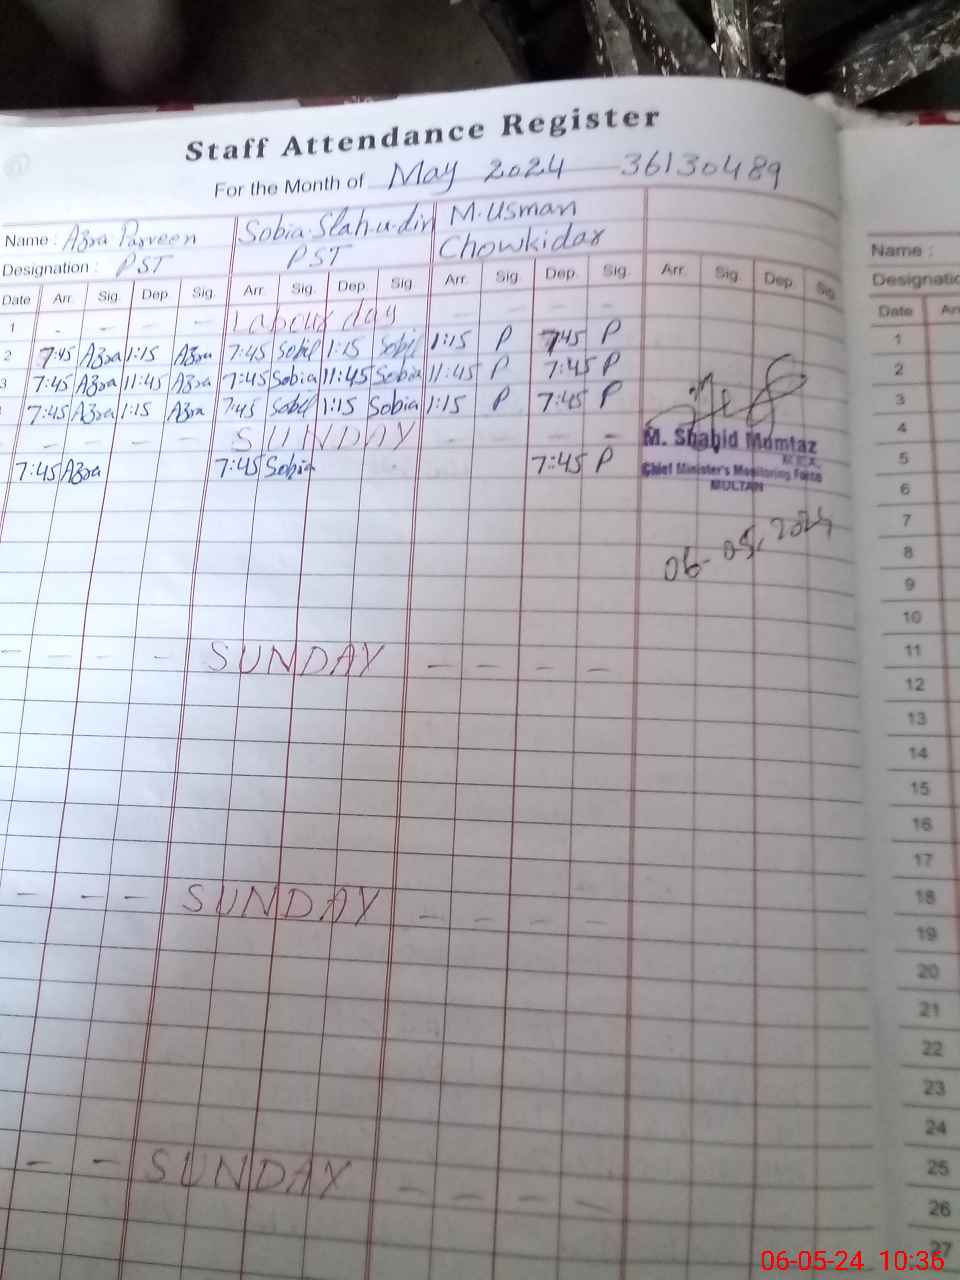 Staff Attendance Register
For the Month of May 2024 36130489
Name : Azra Parveen Sobia Slah-u-din M. Usman
Designation : PST PST Chowkidar
Date Arr. Sig. Dep. Sig. Arr. Sig. Dep. Sig. Arr. Sig. Dep. Sig. Arr. Sig. Dep. Sig.
1 - - - - Labour day - - - -
2 7:45 Azra 1:15 Azra 7:45 Sobi 1:15 Sobi 1:15 P 7:45 P
3 7:45 Azra 11:45 Azra 7:45 Sobia 11:45 Sobia 11:45 P 7:45 P
7:45 Azra 1:15 Azra 7:45 Sobi 1:15 Sobia 1:15 P 7:45 P
- - - - SUNDAY - - - -
7:45 Azra 7:45 Sobia 7:45 P
M. Shahid Momtaz
Chief Minister's Monitoring Force
MULTAN
06-05-2024
- - - - SUNDAY - - - -
- - - SUNDAY - - - -
- - SUNDAY - - - -
Name :
Designatio
Date Arr
1
2
3
4
5
6
7
8
9
10
11
12
13
14
15
16
17
18
19
20
21
22
23
24
25
26
27
06-05-24 10:36